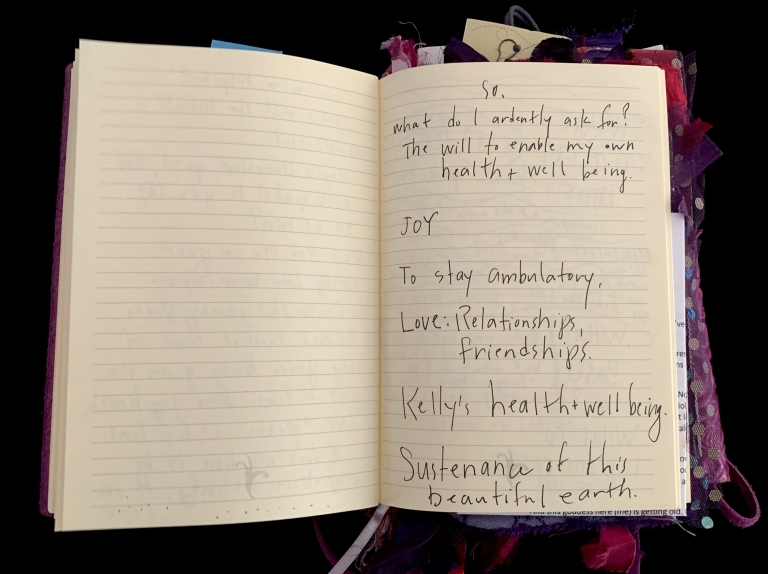 So,
what do I ardently ask for?
The will to enable my own
health + well being.
JOY
To stay ambulatory,
Love: Relationships,
friendships.
Kelly's health + well being.
Sustenance of this
beautiful earth.
And this goddess here (me) is getting old.